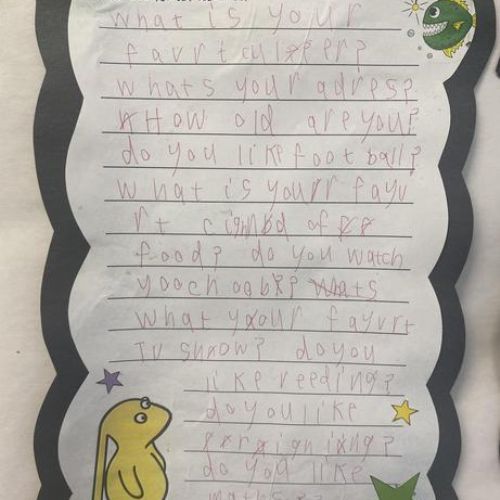 what is your
favrt culer?
whats your adres?
How old are you?
do you like football?
what is yourr favv
rt cignbd of
food? do you watch
yoochoobk? whats
what your favvrt
tv show? do you
like reeding?
do you like
do you like
maths?